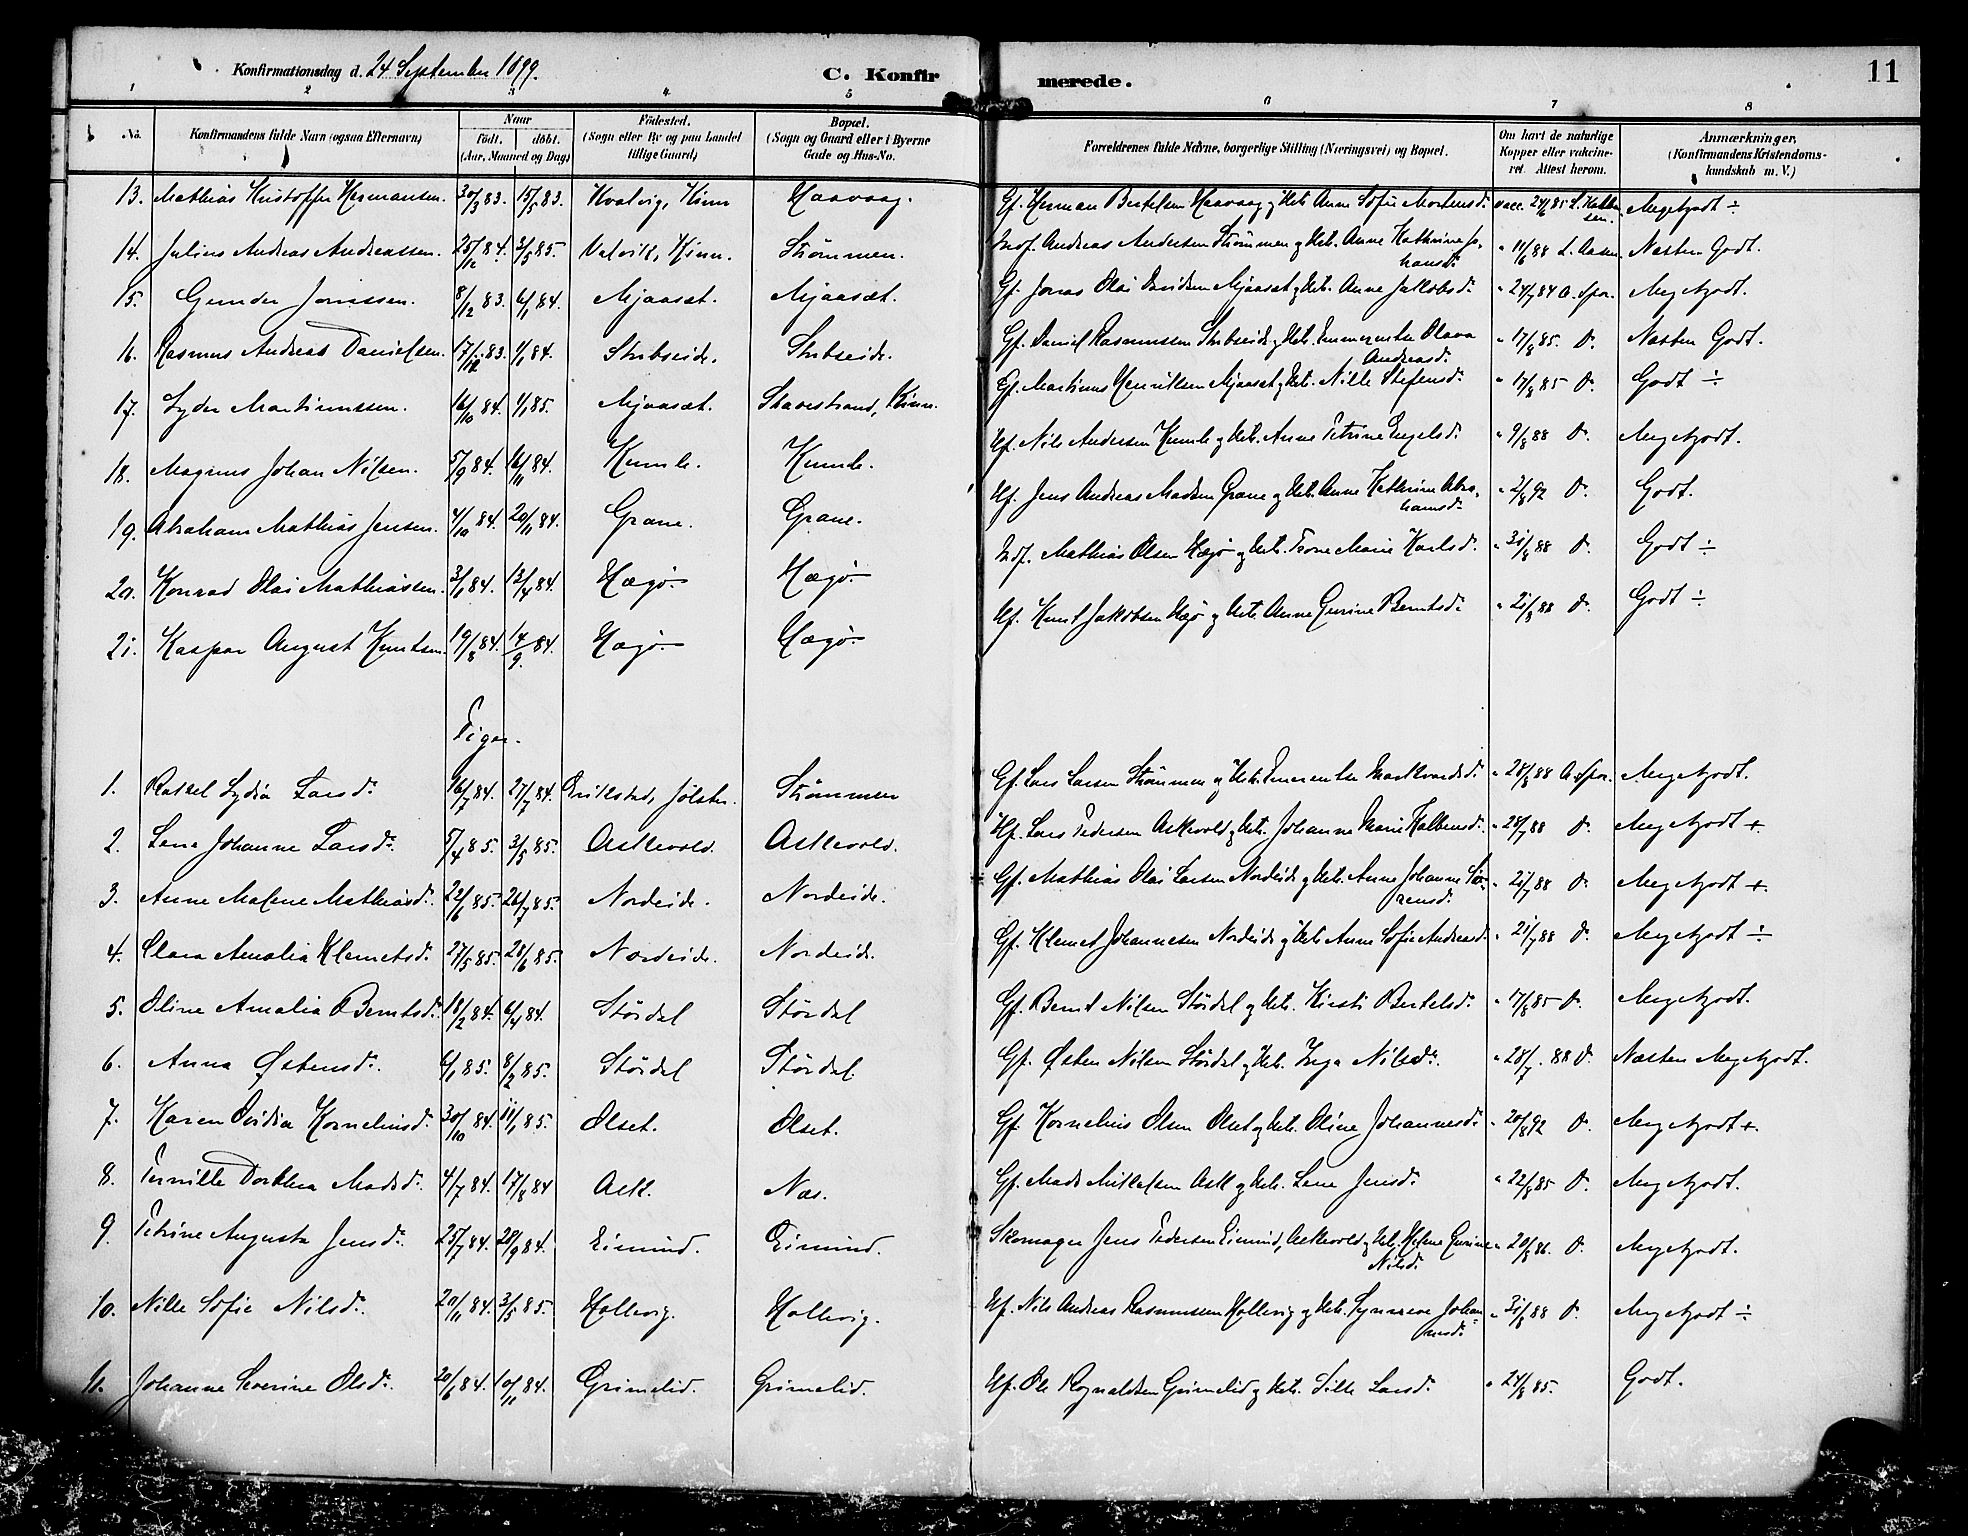 Konfirmationsdag d. 24 September 1899.
C. Konfirmerede.
11
1 2 3 4 5 6 7 8
No. Konfirmandens fulde Navn (ogsaa Efternavn) Naar født. døbt. (Aar, Maaned og Dag) Fødested. (Sogn eller By og paa Landet tillige Gaard) Bopæl. (Sogn og Gaard eller i Byerne Gade og Hus-No. Forældrenes fulde Navne, borgerlige Stilling (Næringsvei) og Bopæl. Om havt de naturlige Kopper eller vakcineret. Attest herom. Anmærkninger, (Konfirmandens Kristendomskundskab m. V.)
13. Mathias Kristoffer Hermansen. 30/3 83. 15/5 83. Kvalvig, Kinn Haavaag. Gf. Herman Bertelsen Haavaag og Hst. Anne Sofie Mortensd. vacc. 24/6 85 Meget godt ÷
14. Julius Andreas Andreassen. 25/12 84. 3/5 85. Kinn. Strømmen. Andreas Andersen Strømmen og Hst. Anne Kathrine Johansd. " 11/6 88 L. Aasen Næsten Godt.
15. Gunder Jonassen. 8/12 83. 6/1 84. Mjaaset. Mjaaset. Gf. Jonas Olai Davidsen Mjaaset og Hst. Anne Jakobsd. " 24/7 84 Meget godt.
16. Rasmus Andreas Danielsen. 17/12 83. 1/1 84. Stubseide. Stubseide. Gf. Daniel Rasmussen Stubseide og Hst. Emmerentse Olava Andreasd. " 17/8 85. Do. Næsten Godt.
17. Lyder Martinussen. 16/10 84. 1/1 85. Mjaaset. Stavestrand, Kinn. Gf. Martinus Henriksen Mjaaset og Hst. Nille Stefensd. " 17/8 85 Do. Godt ÷
18. Magnus Johan Nilsen. 5/9 84. 16/11 84. Kumle. Kumle. Hf. Nils Andersen Kumle og Hst. Anne Petrine Engelsd. " 9/8 88 Do. Meget godt.
19. Abraham Mathias Jensen. 4/10 84. 20/11 84. Grane. Grane. Hf. Jens Andreas Madsen Grane og Hst. Anne Kathrine Abrahamsd. " 2/8 92 Do. Godt.
20. Konrad Olai Mathiassen. 3/1 84. 13/4 84. Hægø. Hægø. Mathias Olsen Hægø og Hst. Marie Karlsd. " 31/8 88 Do. Godt ÷
21. Kaspar August Knutsen. 19/8 84. 14/9. 84. Hægø. Hægø. Hf. Knut Jakobsen Hægø og Hst. Anne Gurine Berntsd. " 21/8 88 Do. Godt ÷
Piger.
1. Rakel Lydia Larsd. 16/7 84. 27/7 84. Jølster. Strømmen Gf. Lars Larsen Strømmen og Hst. Emerentse Markvardsd. " 28/8 88 Meget godt.
2. Lena Johanne Larsd. 5/4 85. 3/5 85. Askevold. Askevold. Hf. Lars Pedersen Askevold og Hst. Johanne Marie Kolbensd. " 28/7 88 Do. Meget godt +.
3. Anne Malene Mathiasd. 22/6 85. 26/7 85. Nordeide. Nordeide. Gf. Mathias Olai Larsen Nordeide og Hst. Anne Johanne Sørensd. " 21/7 88 Do. Meget godt +.
4. Clara Amalia Klemetsd. 27/5 85. 28/6 85. Nordeide. Nordeide. Gf. Klemet Johannesen Nordeide og Hst. Anne Sofie Andreasd. " 21/7 88 Do. Meget godt ÷
5. Oline Amalia Berntsd. 18/2 84. 6/4 84. Størdal Størdal Gf. Bernt Nilsen Størdal og Hst. Kirsti Bertelsd. " 17/8 85 Do. Meget godt.
6. Anna Østensd. 6/1 85. 8/2 85. Størdal Størdal. Gf. Østen Nilsen Størdal og Hst. Inga Nilsd. " 28/7. 88 Do. Næsten Meget godt.
7. Karen Ovidia Kornelinsd. 30/10 84. 11/1 85. Olset. Olset. Gf. Kornelius Olsen Olset og Hst. Oline Johannesd. " 20/8 92 Do. Meget godt +.
8. Pernille Dorthea Madsd. 4/7 84. 17/8 84 Ask. Næs. Gf. Mads Mikkelsen Ask og Hst. Lene Jensd. " 22/8 85 Do. Meget godt.
9. Petrine Augusta Jensd. 25/7 84. 28/9 84. Eimind. Eimind. Skomager Jens Pedersen Eimind, Askevold og Hst. Helene Gurine Nilsd. " 20/8 86. Do. Meget godt.
10. Nille Sofie Nilsd. 20/11 84. 3/5 85. Hollevig. Hollevig. Hf. Nils Andreas Rasmussen Hollevig og Hst. Synneve Johannesd. " 31/8 88 Do. Meget godt ÷
11. Johanne Severine Olsd. 20/6 84. 10/11 84. Grimelid. Grimelid. Hf. Ole Rognaldsen Grimelid og Hst. Sille Larsd. " 24/8 85. Godt.